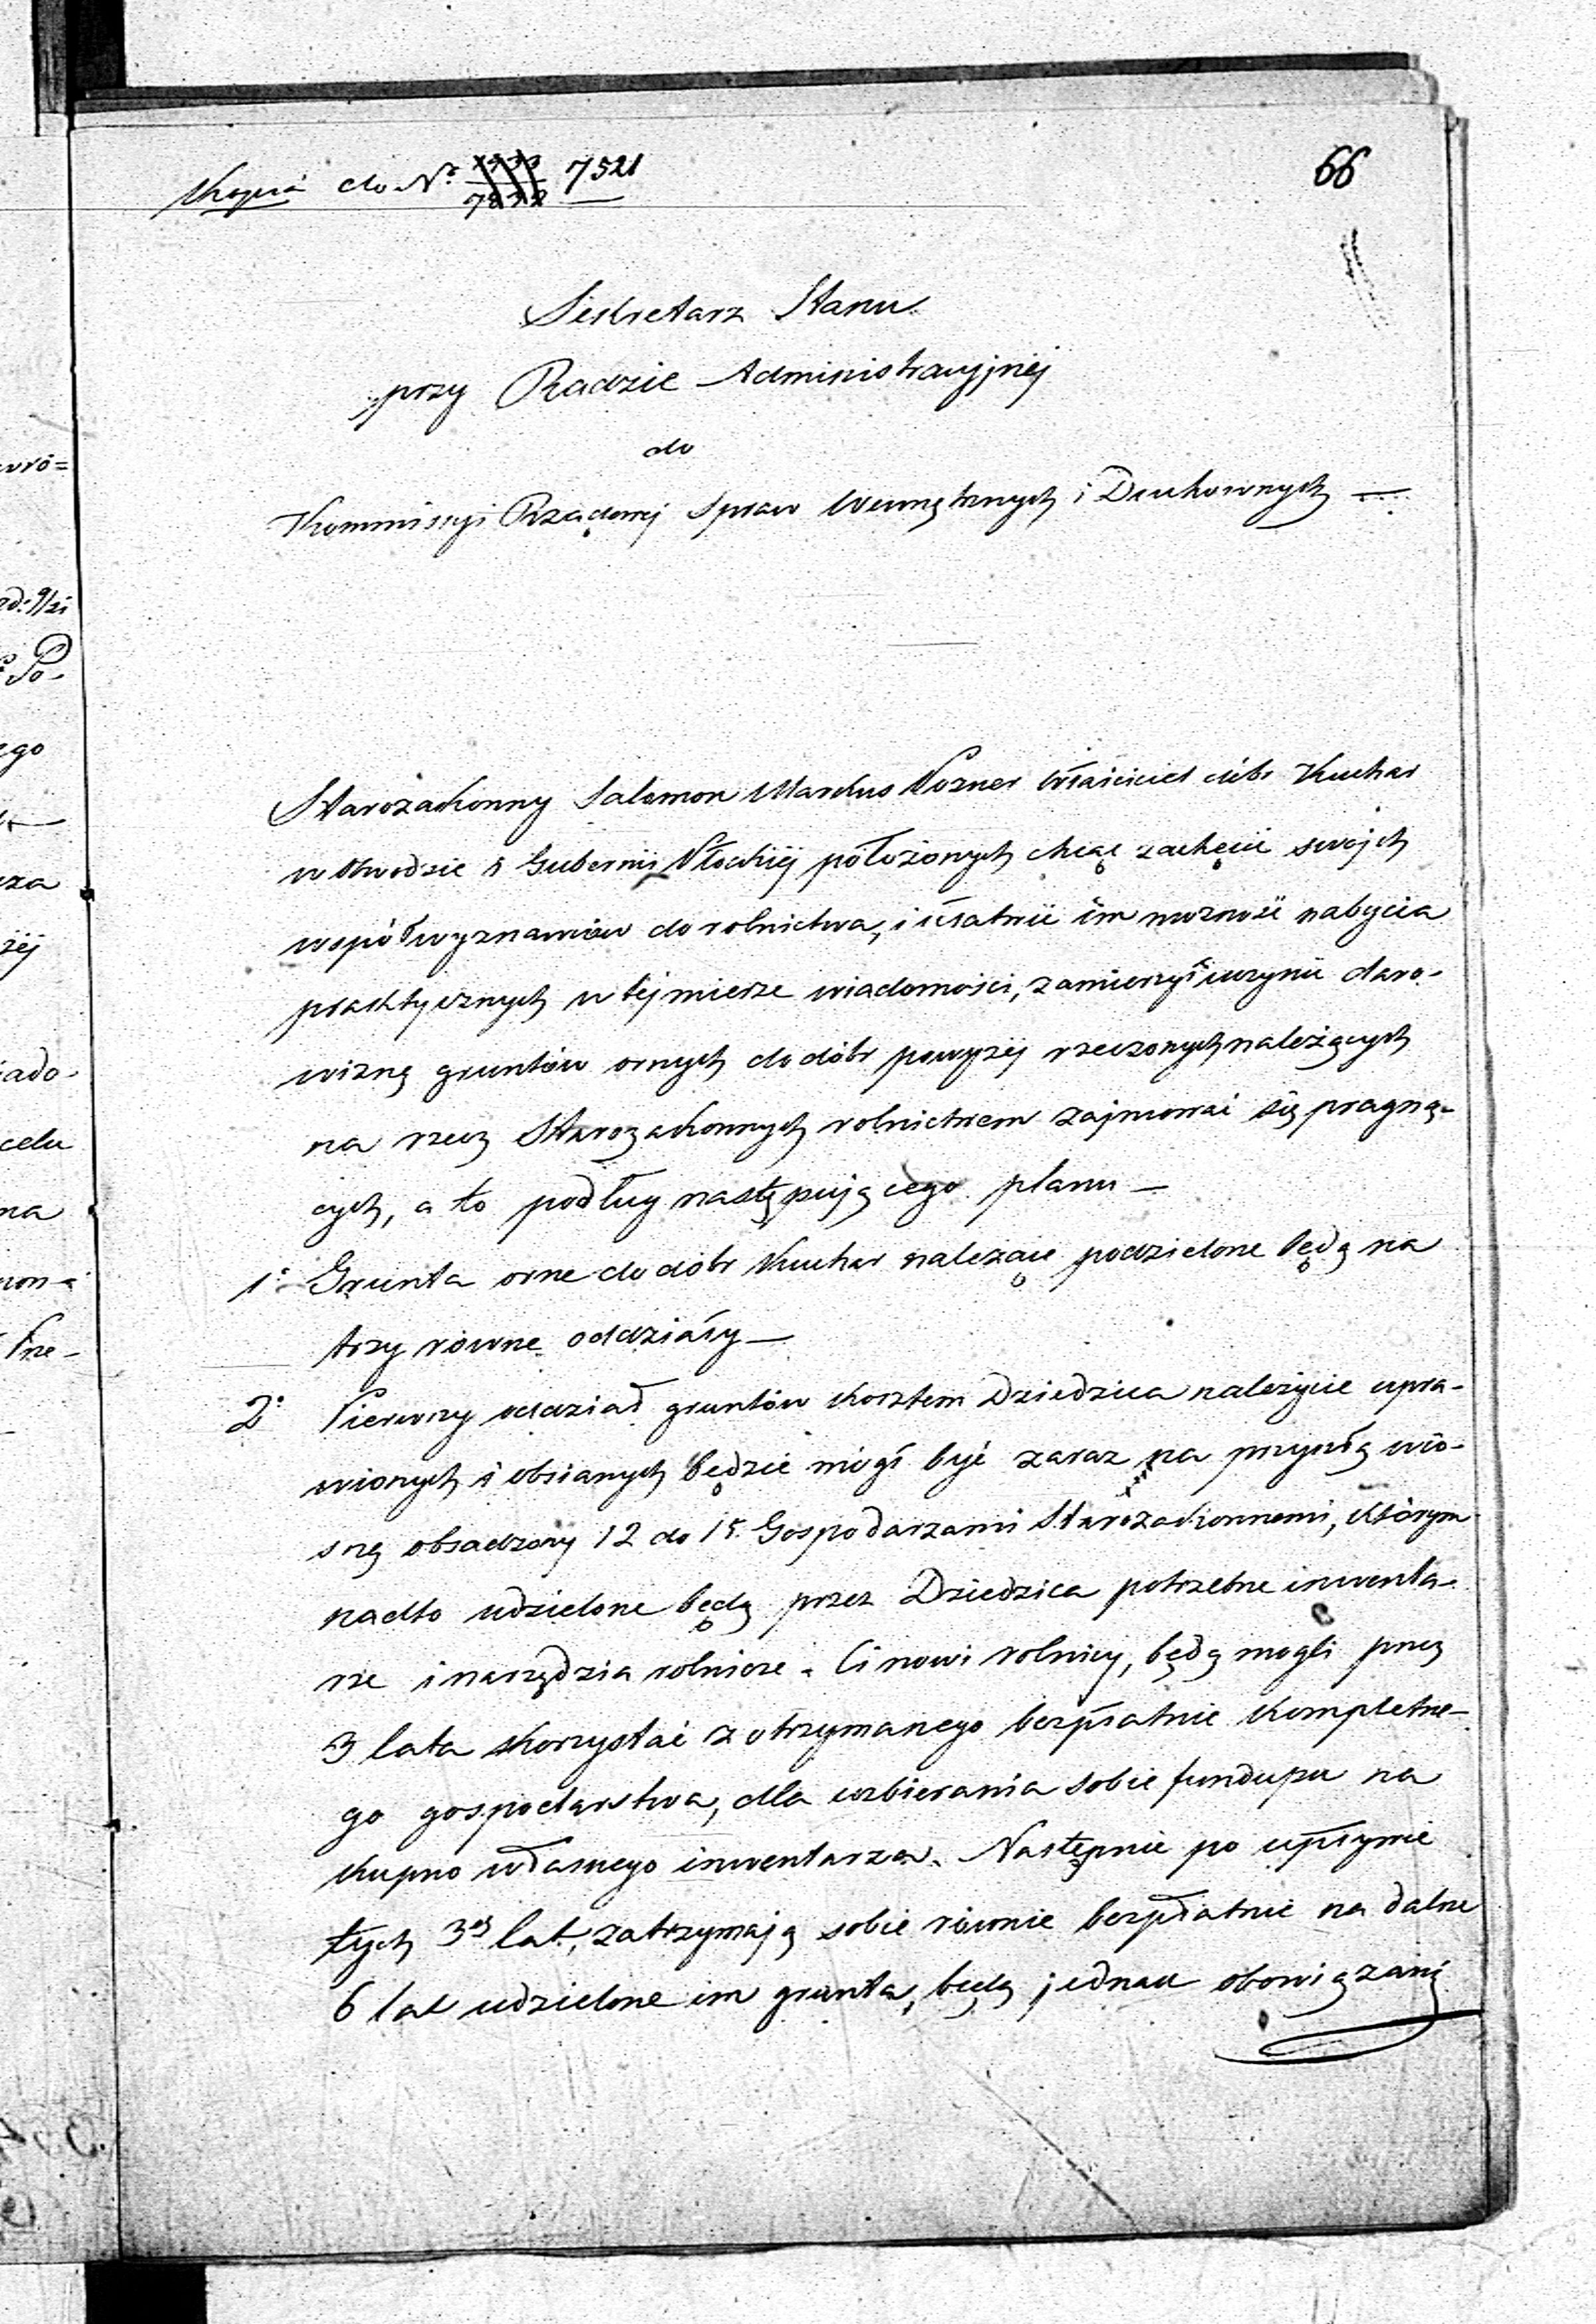 Kopia do Nr. 7521
66
Sekretarz Stanu
przy Radzie Administracyjnej
do
Kommissyi Rządowej Spraw Wewnętrznych i Duchownych —
Starozakonny Salomon Markus Pozner Właściciel dóbr Kuchar
w Obwodzie i Gubernii Płockiej położonych chcąc zachęcić swojch
współwyznawców do rolnictwa, i ułatwić im możność nabycia
praktycznych w tej mierze wiadomości, zamierzył uczynić daro-
wiznę gruntów ornych do dóbr powyżej rzeczonych należących
na rzecz Starozakonnych rolnictwem zajmować się pragną-
cych, a to podług następującego planu —
1° Grunta orne do dóbr Kuchar należące podzielone będą na
trzy równe oddziały —
2° Pierwszy oddział gruntów kosztem Dziedzica należycie upra-
wionych i obsianych będzie mógł być zaraz na przyszłą wio-
snę obsadzony 12 do 15 Gospodarzami Starozakonnemi, którym
nadto udzielone będą przez Dziedzica potrzebne inwenta-
rze i narzędzia rolnicze. Ci nowi rolnicy, będą mogli przez
3 lata korzystać z otrzymanego bezpłatnie kompletne-
go gospodarstwa, dla uzbierania sobie funduszu na
kupno własnego inwentarza. Następnie po upływie
tych 3ch lat, zatrzymają sobie równie bezpłatnie na dalsze
6 lat udzielone im grunta, będą jednak obowiązani
wró=
rd: 9/21
Po-
ego
cza
zéj
iado-
celu
na